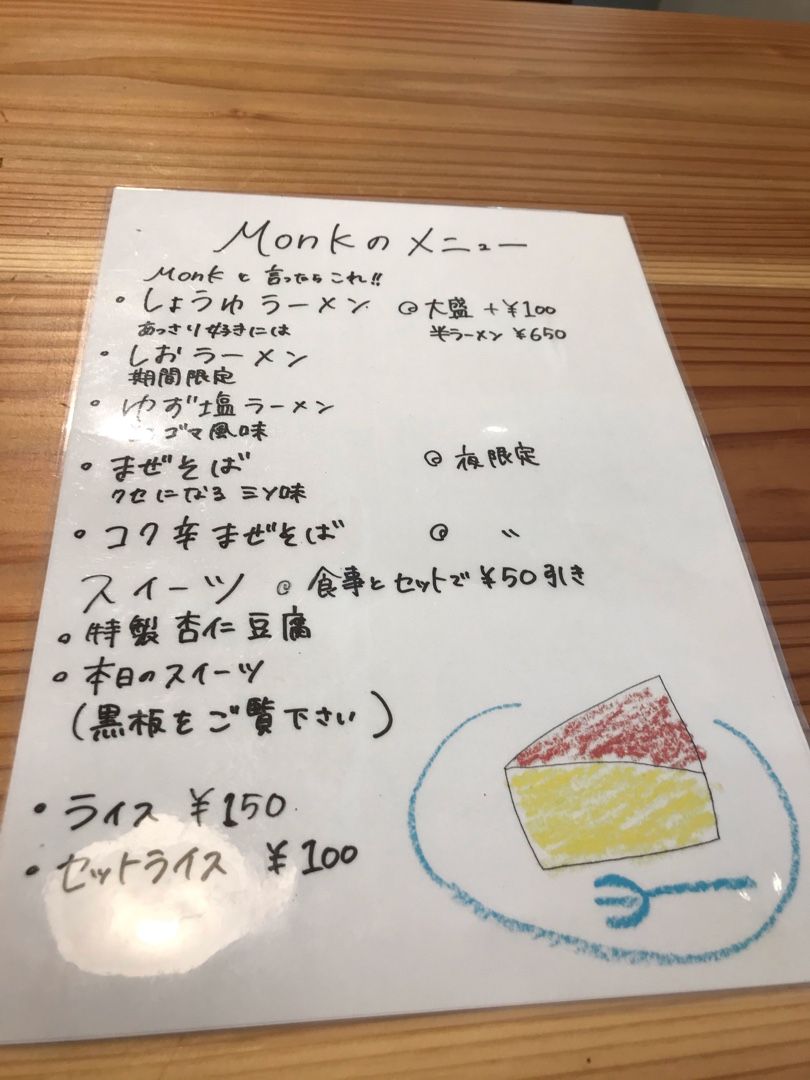 Monkのメニュー
Monkと言ったらこれ!!
・しょうゆラーメン @大盛 +¥100
あっさり好きには 半ラーメン ¥650
・しおラーメン
期間限定
・ゆず塩ラーメン
ゴマ風味
・まぜそば @夜限定
クセになる 三ツ味
・コク辛まぜそば @ 〃
スイーツ @食事とセットで¥50引き
。特製杏仁豆腐
。本日のスイーツ
(黒板をご覧下さい)
・ライス ¥150
・セットライス ¥100